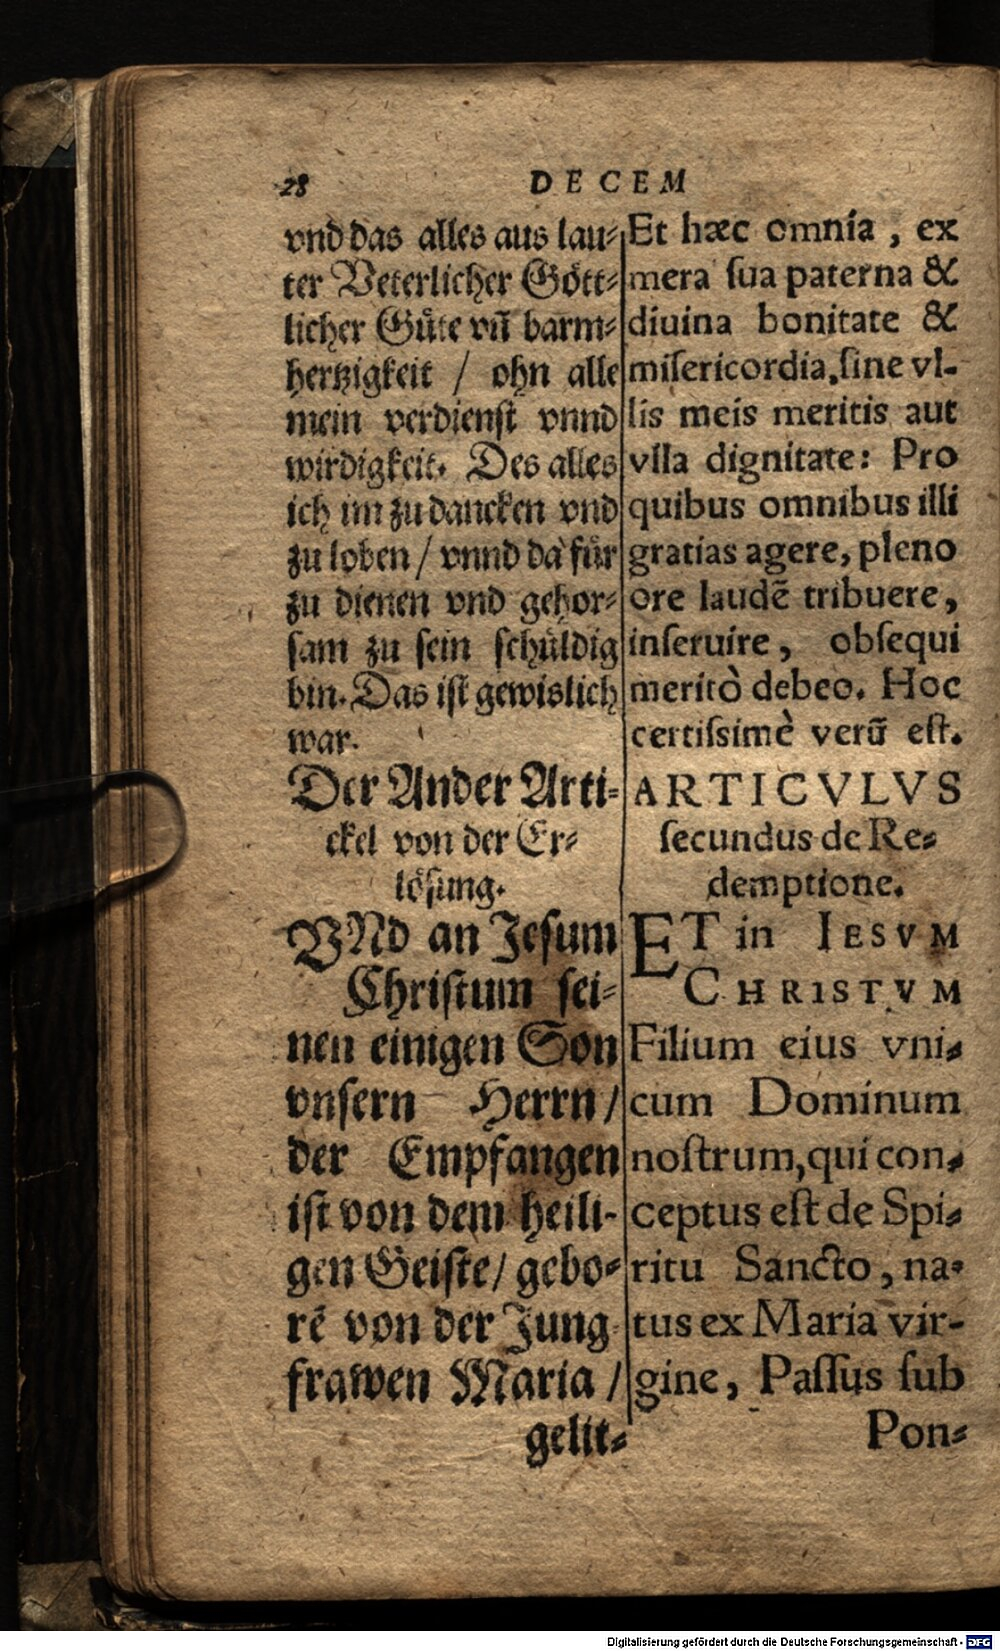 28
DECEM
vnd das alles aus lau⸗
ter Veterlicher Gött⸗
licher Güte vn̄ barm⸗
hertzigkeit / ohn alle
mein verdienst vnnd
wirdigkeit. Des alles
ich im zu dancken vnd
zu loben / vnnd da für
zu dienen vnd gehor⸗
sam zu sein schüldig
bin. Das ist gewislich
war.
Der Ander Arti⸗
ckel von der Er⸗
lösung.
VNd an Jesum
Christum sei⸗
nen einigen Son
vnsern Herrn /
der Empfangen
ist von dem heili-
gen Geiste / gebo⸗
rē von der Jung
frawen Maria /
gelit⸗
Et hæc omnia , ex
mera ſua paterna &
diuina bonitate &
miſericordia, ſine vl-
lis meis meritis aut
vlla dignitate: Pro
quibus omnibus illi
gratias agere, pleno
ore laudē tribuere,
inſeruire, obſequi
meritò debeo. Hoc
certiſsimè verū eſt.
ARTICVLVS
ſecundus de Re⸗
demptione.
ET in IESVM
CHRISTVM
Filium eius vni⸗
cum Dominum
noſtrum, qui con⸗
ceptus eſt de Spi⸗
ritu Sancto, na⸗
tus ex Maria vir-
gine, Paſſus ſub
Pon⸗
Digitalisierung gefördert durch die Deutsche Forschungsgemeinschaft - DFG